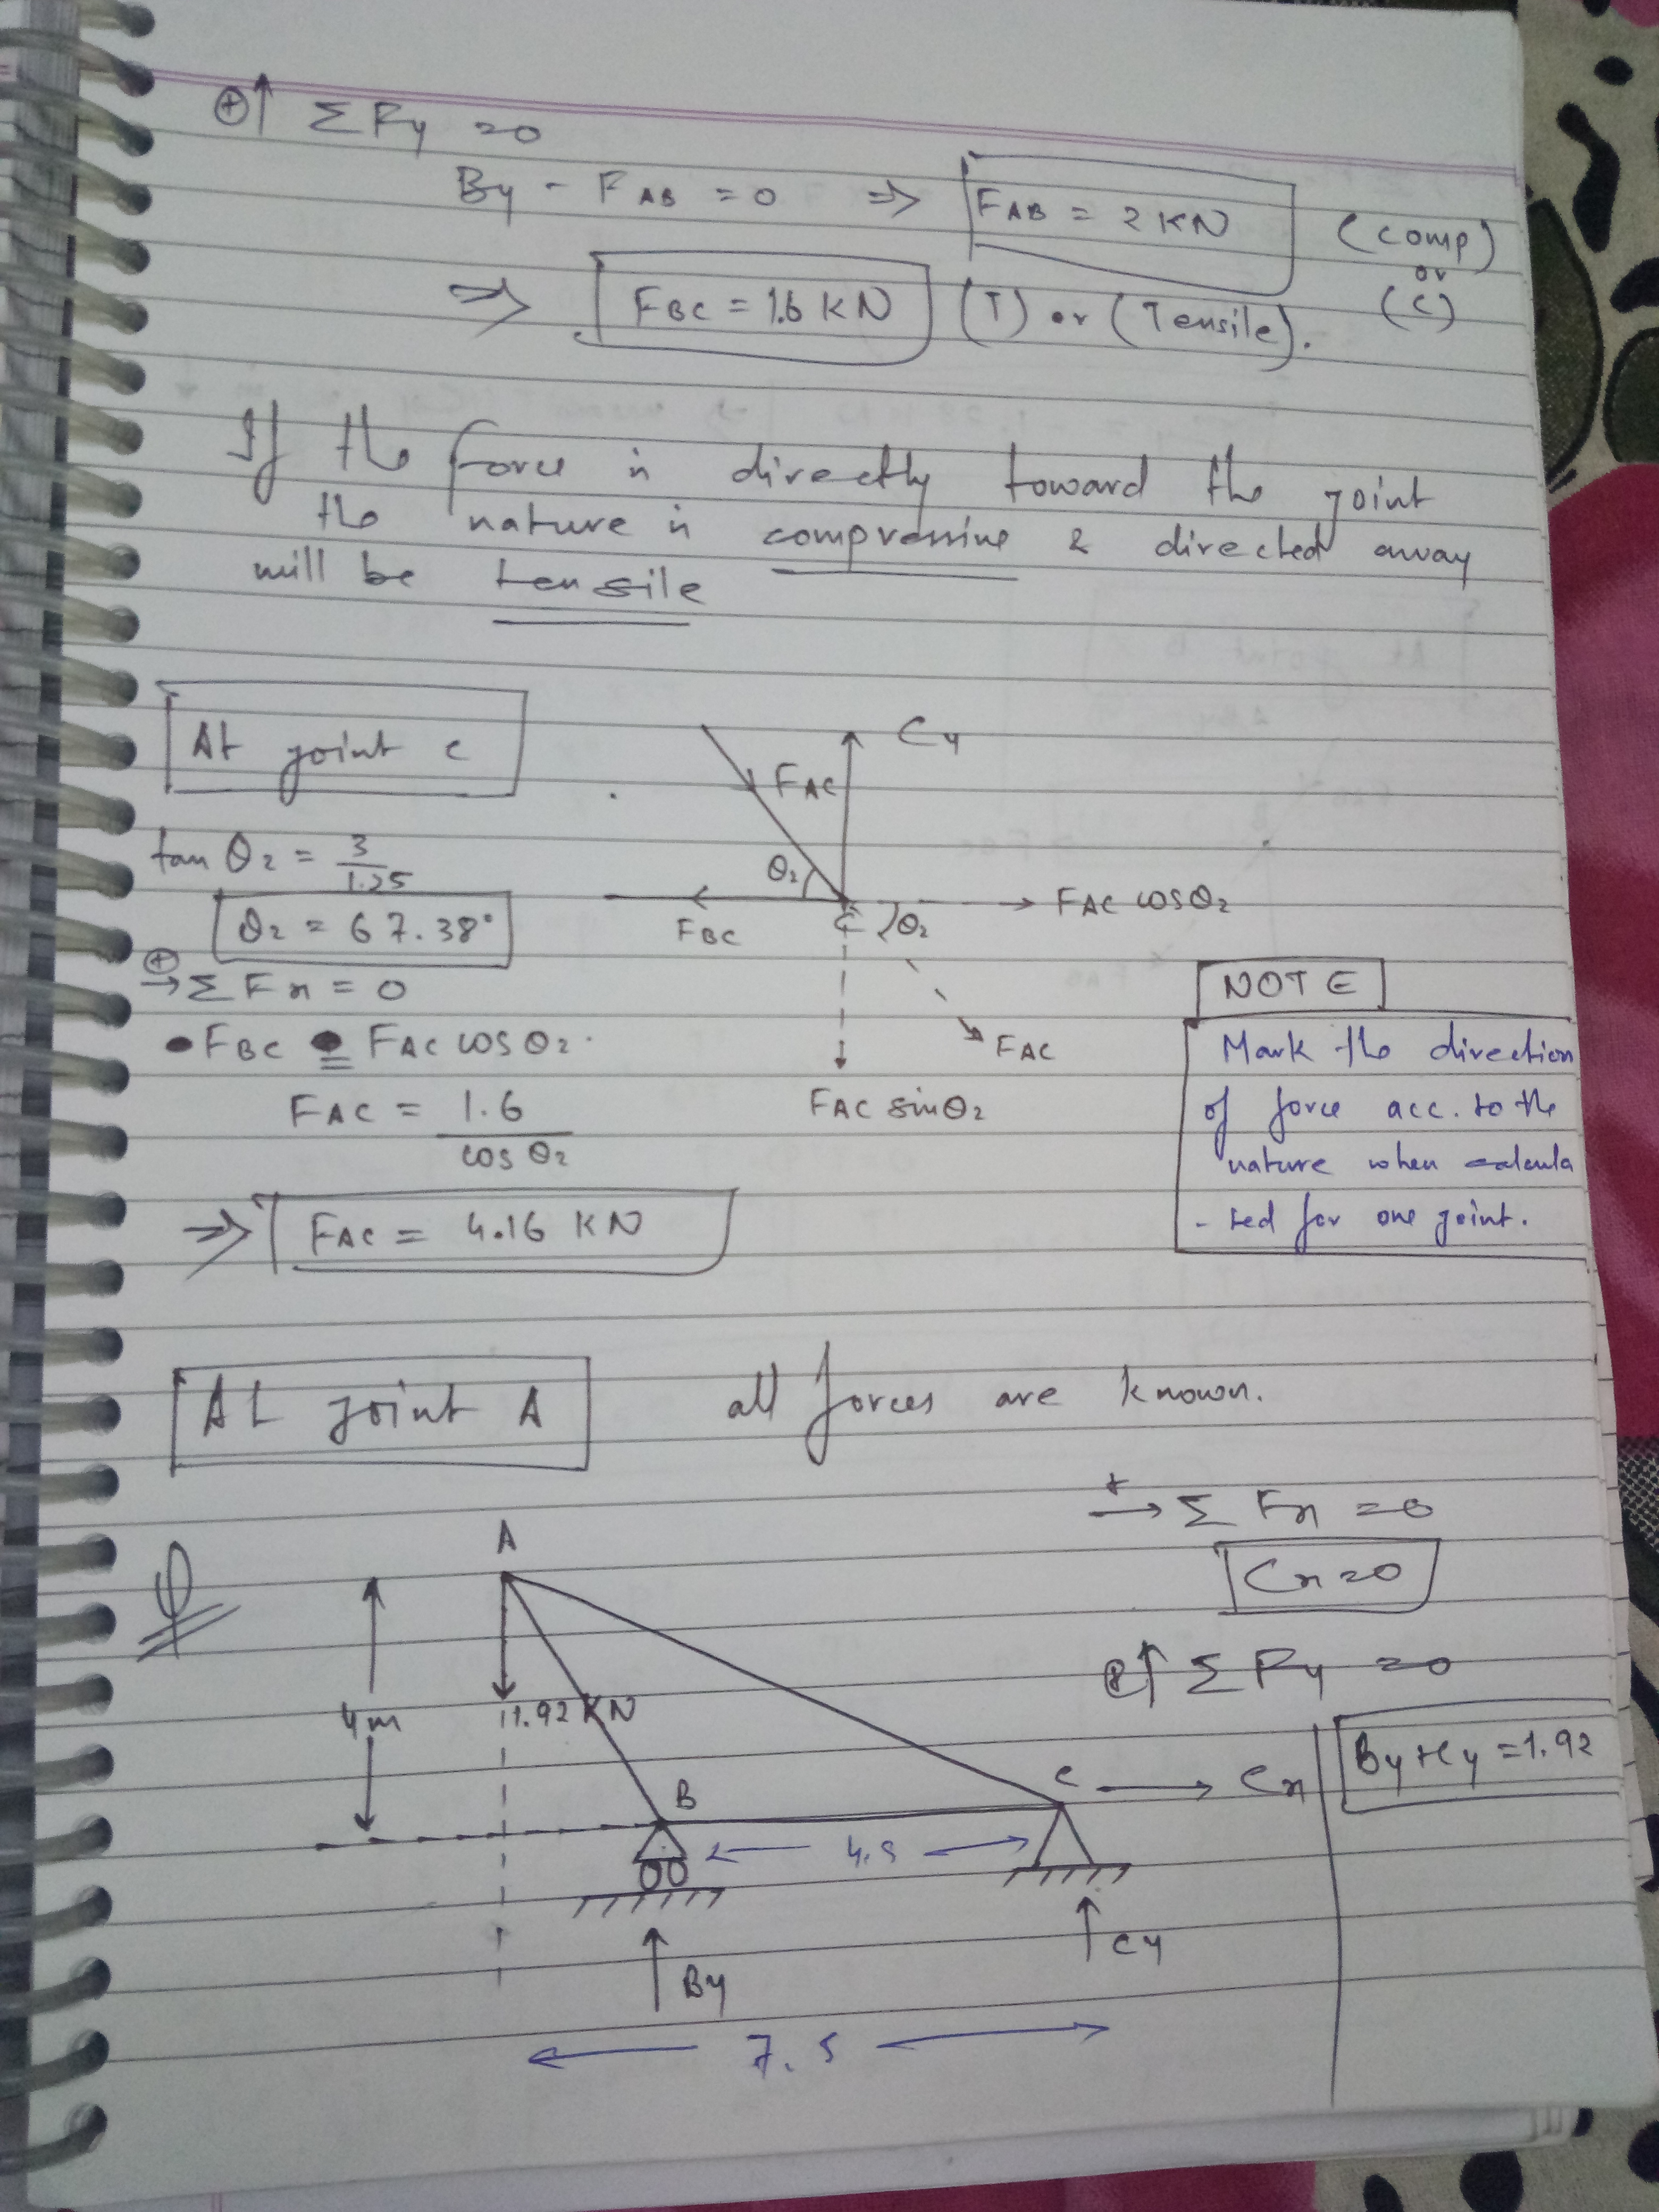 ⊕↑ ΣFy =0
By - FAB = 0 ⇒ FAB = 2 KN (comp)
or
(C)
⇒ FBC = 1.6 KN (T) or (Tensile).
If the force is directly toward the joint
the nature is compressive & directed away
will be tensile
At joint C
Cy
FAC
tan θ2 = 3/1.25
θ2
FAC cosθ2
FBC
C
θ2
θ2 = 67.38°
⊕→ ΣFx = 0
FBC = FAC cosθ2.
FAC
FAC sinθ2
FAC = 1.6/cosθ2
⇒ FAC = 4.16 KN
NOTE
Mark the direction
of force acc. to the
nature when calcula
-ted for one joint.
At joint A all forces are known.
+→ ΣFx =0
Cx=0
⊕↑ ΣFy =0
By+Cy =1.92
A
4m
1.92 KN
B
C
Cx
4.5
By
Cy
7.5